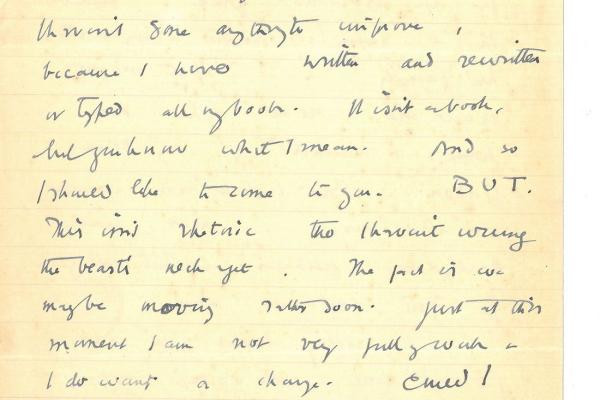 I haven't done anything to improve,
because I have written and rewritten
or typed all my book. It isn't a book,
but you know what I mean. And so
I should like to come to you. BUT.
This isn't rhetoric tho I haven't wrung
the beast's neck yet. The fact is we
may be moving rather soon. Just at this
moment I am not very full of work &
I do want a change. Could I